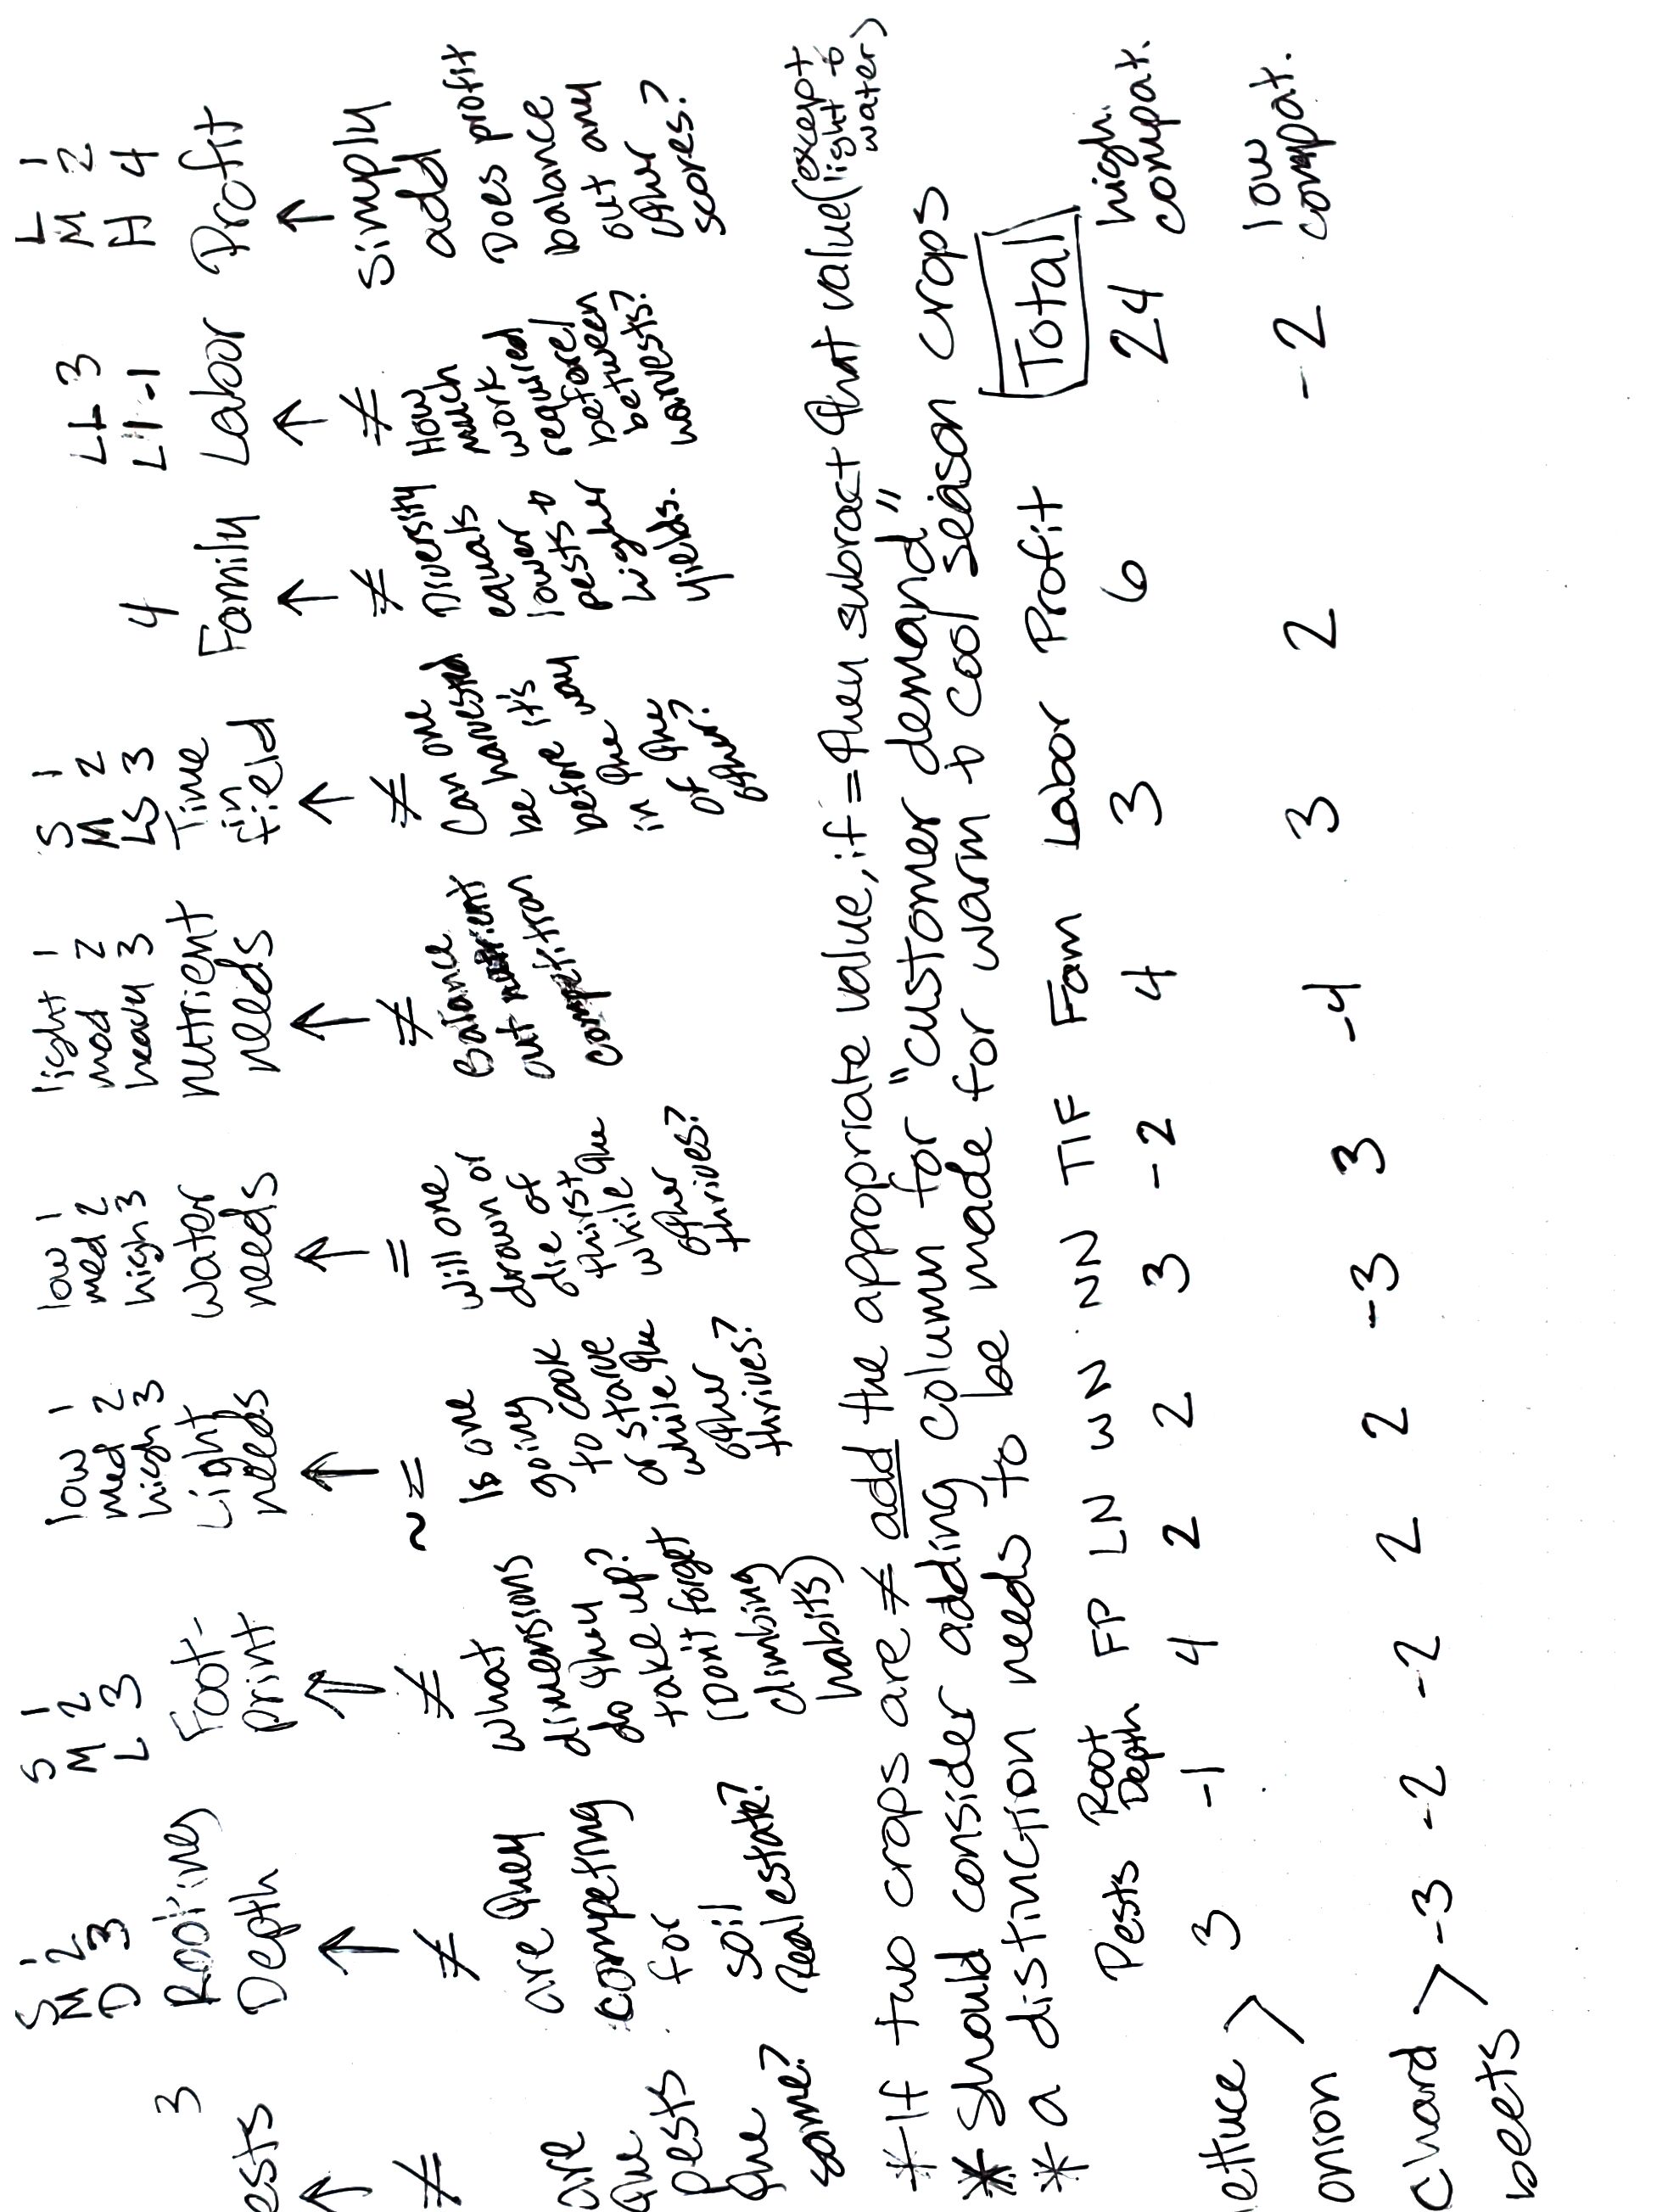 3
ests
↑
≠
are
the
pests
the
same?
S 1
M 2
D 3
Rooting
Depth
↑
≠
are they
competing
for
soil
real estate?
S 1
M 2
L 3
Foot-
print
↑
≠
what
dimensions
do they
take up?
(Don't forget
climbing
habits)
low 1
med 2
high 3
Light
needs
↑
~ =
Is one
going
to cook
or starve
while the
other
thrives?
low 1
med 2
high 3
water
needs
↑
=
will one
drown or
die of
thirst
while the
other
thrives?
light 1
mod 2
heavy 3
nutrient
needs
↑
≠
Balance
out nutrient
competition
S 1
M 2
LS 3
Time
in
field
↑
≠
Can one
be harvested
before it's
the way
in the
of the
other?
4
Family
↑
≠
Diversity
equals
lower
pests +
higher
yields.
LL 3
LI -1
Labor
↑
≠
How
much
work
required
before/
between
harvests?
L 1
M 2
H 4
Profit
↑
simply
add
Does profit
balance
out any
other
scores?
*If two crops are ≠ add the appropriate value, if = then subract that value (except light + water)
* Should consider adding column for "customer demand"
* a distinction needs to be made for warm + cool season crops
Pests Root Depth FP LN WN NN TIF Fam Labor Profit Total
ettuce > 3 -1 4 2 2 3 -2 4 3 6 24 high compat.
onion
chard > -3 -2 -2 2 2 -3 3 -4 3 2 -2 low compat.
beets